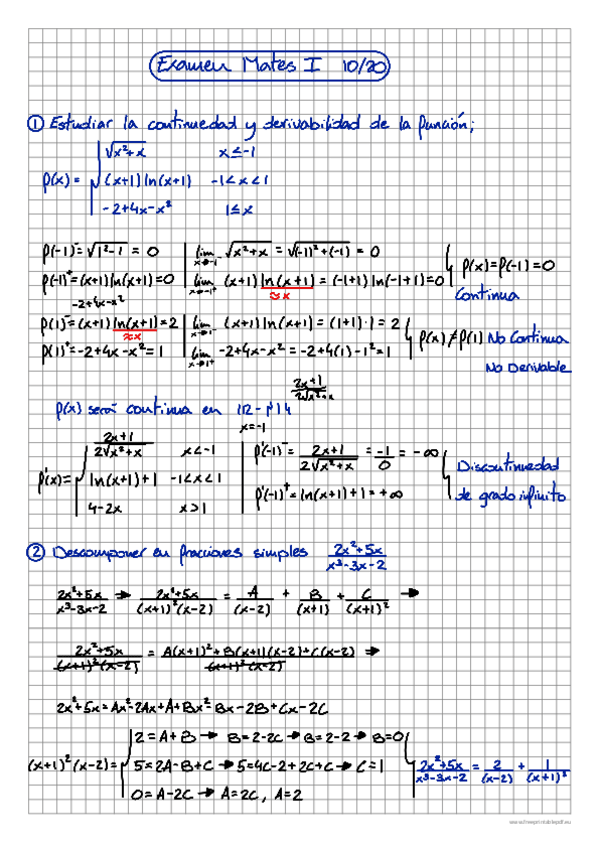 Examen Mates I 10/20
① Estudiar la continuedad y derivabilidad de la función;
√x²+x x≤-1
f(x)= (x+1)ln(x+1) -1<x<1
-2+4x-x² 1≤x
f(-1)⁻=√1²-1 = 0 lim x→-1⁻ √x²+x = √(-1)²+(-1) = 0
f(-1)⁺=(x+1)ln(x+1)=0 lim x→-1⁺ (x+1)ln(x+1)=(-1+1)ln(-1+1)=0 f(x)=f(-1)=0
≈x Continua
-2+4x-x²
f(1)⁻=(x+1)ln(x+1)=2 lim x→1⁻ (x+1)ln(x+1)=(1+1)·1=2 f(x)≠f(1) No Continua
≈x
f(1)⁺=-2+4x-x²=1 lim x→1⁺ -2+4x-x²=-2+4(1)-1²=1
No Derivable
2x+1
2√x²+x
f(x) será continua en
x=-1
2x+1/2√x²+x x<-1 f'(-1)⁻= 2x+1/2√x²+x = -1/0 = -∞
f'(x)= ln(x+1)+1 -1<x<1 Discontinuedad
4-2x x>1 f'(-1)⁺=ln(x+1)+1=+∞ de grado infinito
② Descomponer en fracciones simples 2x²+5x/x³-3x-2
2x²+5x/x³-3x-2 → 2x²+5x/(x+1)²(x-2) = A/(x-2) + B/(x+1) + C/(x+1)² →
2x²+5x/(x+1)²(x-2) = A(x+1)²+B(x+1)(x-2)+C(x-2)/(x+1)²(x-2) →
2x²+5x=Ax²-2Ax+A+Bx²-Bx-2B+Cx-2C
2=A+B → B=2-2C → B=2-2 → B=0
(x+1)²(x-2)= 5=2A-B+C → 5=4C-2+2C+C → C=1 2x²+5x/x³-3x-2 = 2/(x-2) + 1/(x+1)²
0=A-2C → A=2C, A=2